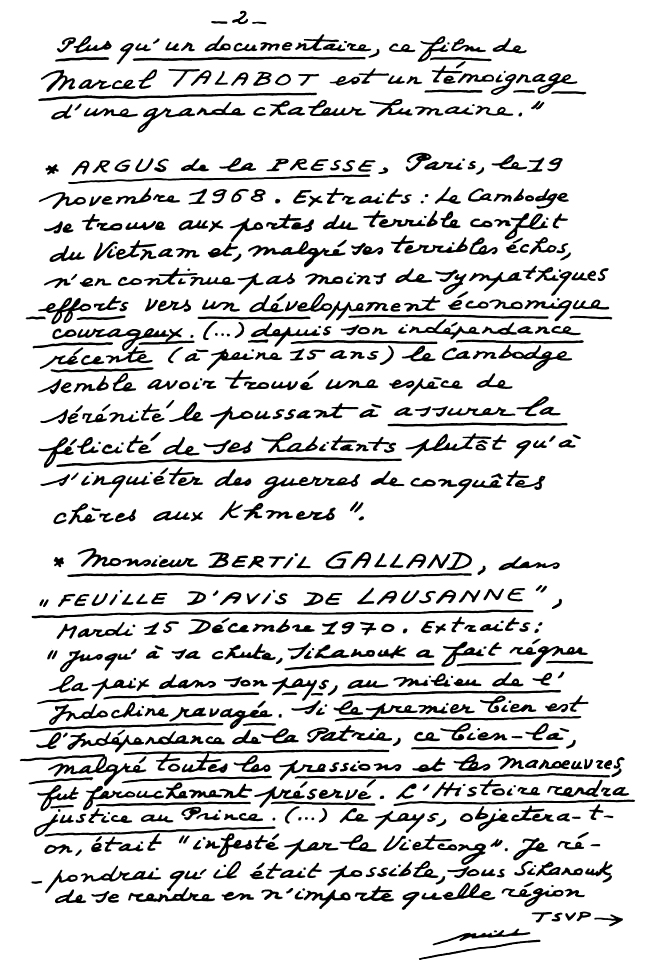 -2-
Plus qu'un documentaire, ce film de
Marcel TALABOT est un témoignage
d'une grande chaleur humaine."
* ARGUS de la PRESSE, Paris, le 19
novembre 1968. Extraits : Le Cambodge
se trouve aux portes du terrible conflit
du Vietnam et, malgré ses terribles échos,
n'en continue pas moins de sympathiques
efforts vers un développement économique
courageux. (...) depuis son indépendance
récente (à peine 15 ans) le Cambodge
semble avoir trouvé une espèce de
sérénité le poussant à assurer la
félicité de ses habitants plutôt qu'à
s'inquiéter des guerres de conquêtes
chères aux Khmers".
* Monsieur BERTIL GALLAND, dans
"FEUILLE D'AVIS DE LAUSANNE",
Mardi 15 Décembre 1970. Extraits :
"Jusqu'à sa chute, Sihanouk a fait régner
la paix dans son pays, au milieu de l'
Indochine ravagée. Si le premier bien est
l'Indépendance de la Patrie, ce bien-là,
malgré toutes les pressions et les manoeuvres,
fut farouchement préservé. L'Histoire rendra
justice au Prince. (...) Le pays, objectera-t-
on, était "infesté par le Vietcong". Je ré-
-pondrai qu'il était possible, sous Sihanouk,
de se rendre en n'importe quelle région
TSVP→